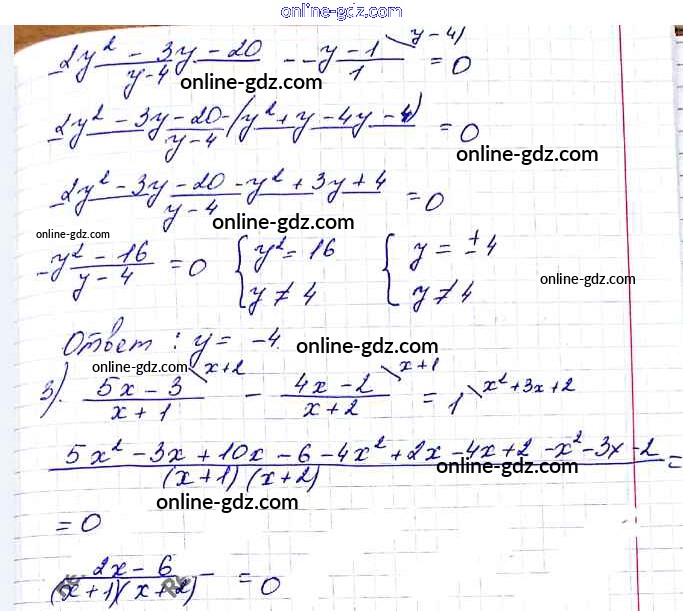 online-gdz.com
(2y² - 3y - 20)/(y - 4) - (y - 1)/1 \ y - 4) = 0
online-gdz.com
(2y² - 3y - 20 - (y² + y - 4y - 4))/(y - 4) = 0
online-gdz.com
(2y² - 3y - 20 - y² + 3y + 4)/(y - 4) = 0
online-gdz.com
online-gdz.com
(y² - 16)/(y - 4) = 0 { y² = 16 y ≠ 4 { y = ± 4 y ≠ 4
online-gdz.com
Ответ: y = -4.
online-gdz.com
online-gdz.com
3). (5x - 3)/(x + 1) \ x+2 - (4x - 2)/(x + 2) \ x+1 = 1 \ x² + 3x + 2
(5x² - 3x + 10x - 6 - 4x² + 2x - 4x + 2 - x² - 3x - 2)/((x + 1)(x + 2)) =
online-gdz.com
online-gdz.com
= 0
(2x - 6)/((x + 1)(x + 2)) = 0
online-gdz.com